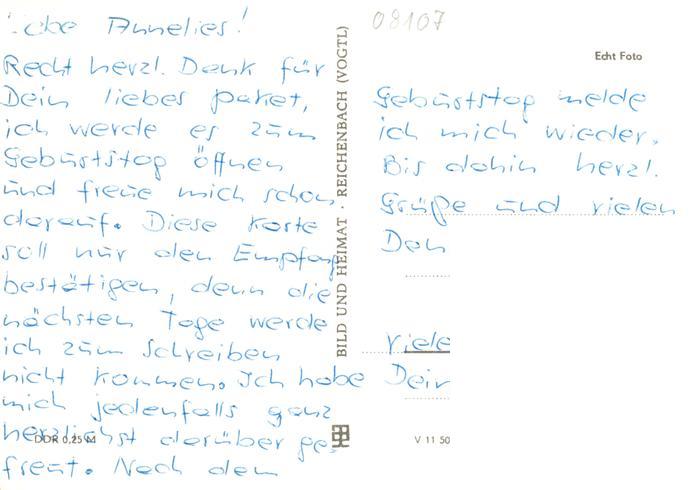 Liebe Annelies!
Recht herzl. Dank für
Dein liebes Paket,
ich werde es zum
Geburtstag öffnen
und freue mich schon
darauf. Diese Karte
soll nur den Empfang
bestätigen, denn die
nächsten Tage werde
ich zum schreiben
nicht kommen. Ich habe
mich jedenfalls ganz
herzlichst darüber ge-
freut. Nach dem
DDR 0,25 M
BILD UND HEIMAT · REICHENBACH (VOGTL)
08107
Echt Foto
Geburtstag melde
ich mich wieder.
Bis dahin herzl.
Grüße und vielen
Dan
Viele
Dein
V 11 50